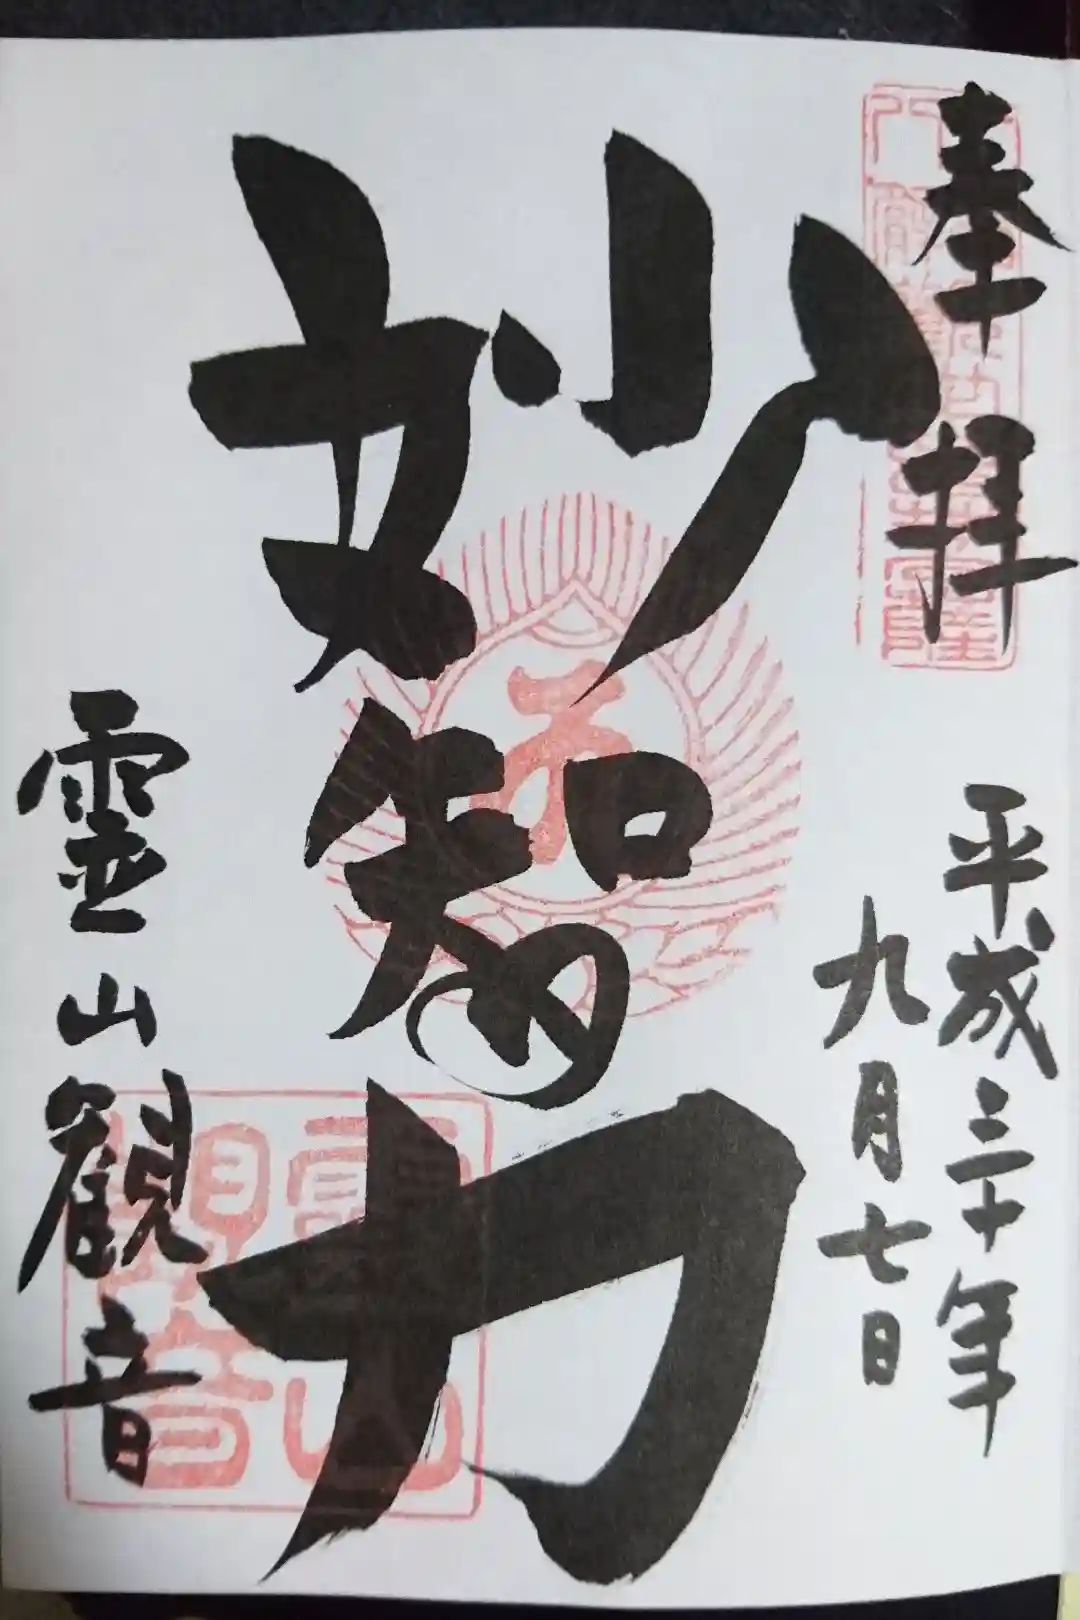 奉拝
平成三十年
九月七日
妙智力
霊山観音
霊山観音